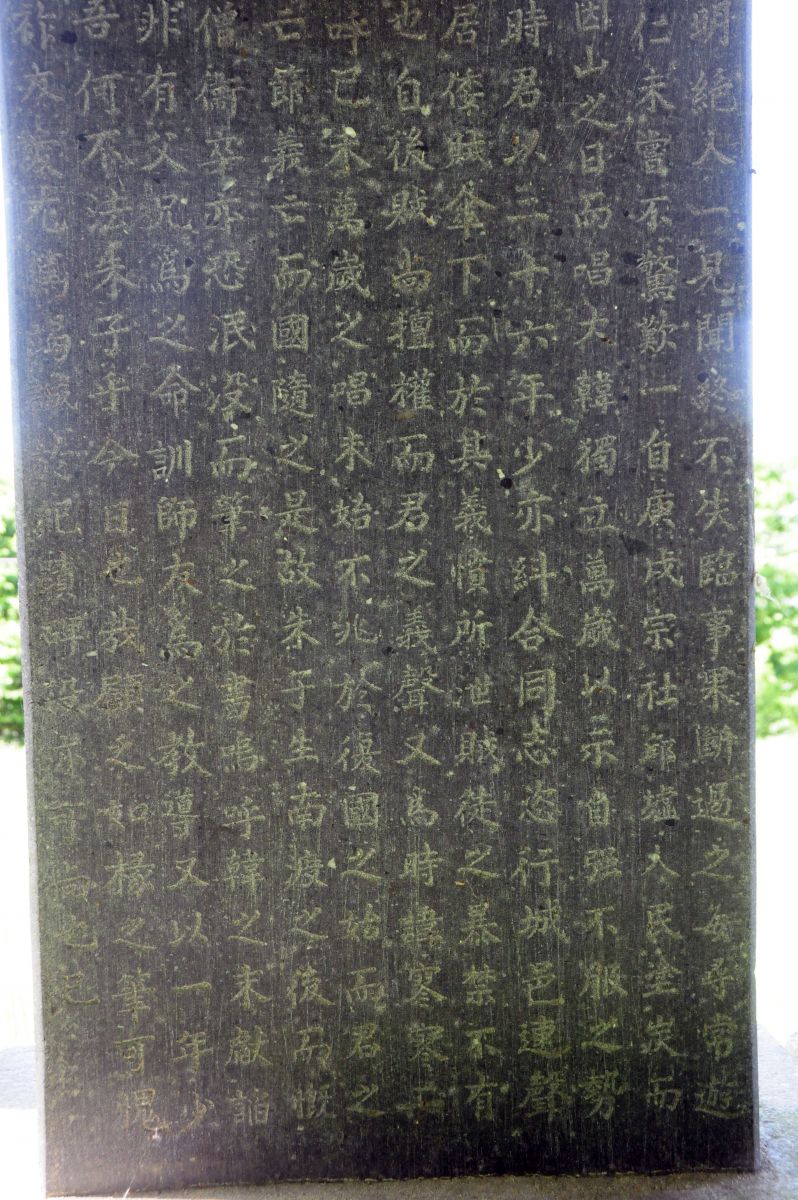 明絕人一見聞終不失臨事果斷過之每尋常遊
仁未嘗不驚歎一自庚戌宗社邱墟人民塗炭而
因山之日而唱大韓獨立萬歲以示自强不服之勢
時君以三十六年少亦糾合同志恣行城邑建聲
居倭賊傘下而於其義憤所泄賊徒之暴禁不有
也白後賊尚擅權而君之義聲又爲時諱寒寒
呼己未萬歲之唱未始不兆於復國之始而君之
亡節義亡而國隨之是故朱子生南渡之後而慨
僧衛卒亦恐泯沒而筆之於書嗚呼韓之末獻
非有父兄爲之命訓師友爲之敎導又以一年少
吾何不法朱子乎今日也哉顧之如椽之筆可愧
友 竭誠於紀蹟碑役亦可尚也已